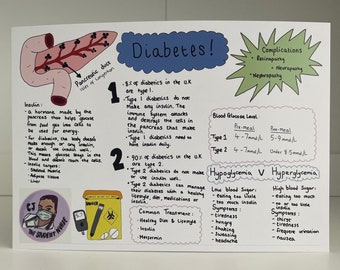 Diabetes!
Pancreatic duct
Islets of Langerhan
Complications
• Retinopathy
• Neuropathy
• Nephropathy
1
• 8% of diabetics in the UK
are type 1.
• Type 1 diabetics do not
make any insulin. The
immune system attacks
and destroys the cells in
the pancreas that make
insulin.
• Type 1 diabetics need
to have insulin daily.
2
• 90% of diabetics in the UK
are type 2.
• Type 2 diabetics do not make
or use insulin well.
• Type 2 diabetics can manage
their diabetes with a healthy
lifestyle, diet, medications or
insulin.
Insulin:
• A hormone made by the
pancreas that helps glucose
from food get into cells to
be used for energy.
• For diabetics, the body doesn't
make enough or any insulin,
or use the insulin well.
This means glucose stays in the
blood and doesn't reach the cells.
Insulin targets:
• Skeletal muscle
• Adipose tissue
• Liver
Blood Glucose Level:
Pre-meal
Post-meal
Type 1
4-7mmol/L
5-9mmol/L
Type 2
4-7mmol/L
Under 8.5mmol/L
Hypoglycemia V Hyperglycemia
Low blood Sugar:
• eating too little
• too much insulin
Symptoms:
• tiredness
• hungry
• shaking
• sweating
• headache
High blood Sugar:
• eating too much
• no or too little
insulin
Symptoms:
• thirst
• tiredness
• frequent urination
• nausea
Common Treatment:
• Healthy Diet & Lifestyle
• Insulin
• Metformin
CJ
THE STUDENT NURSE